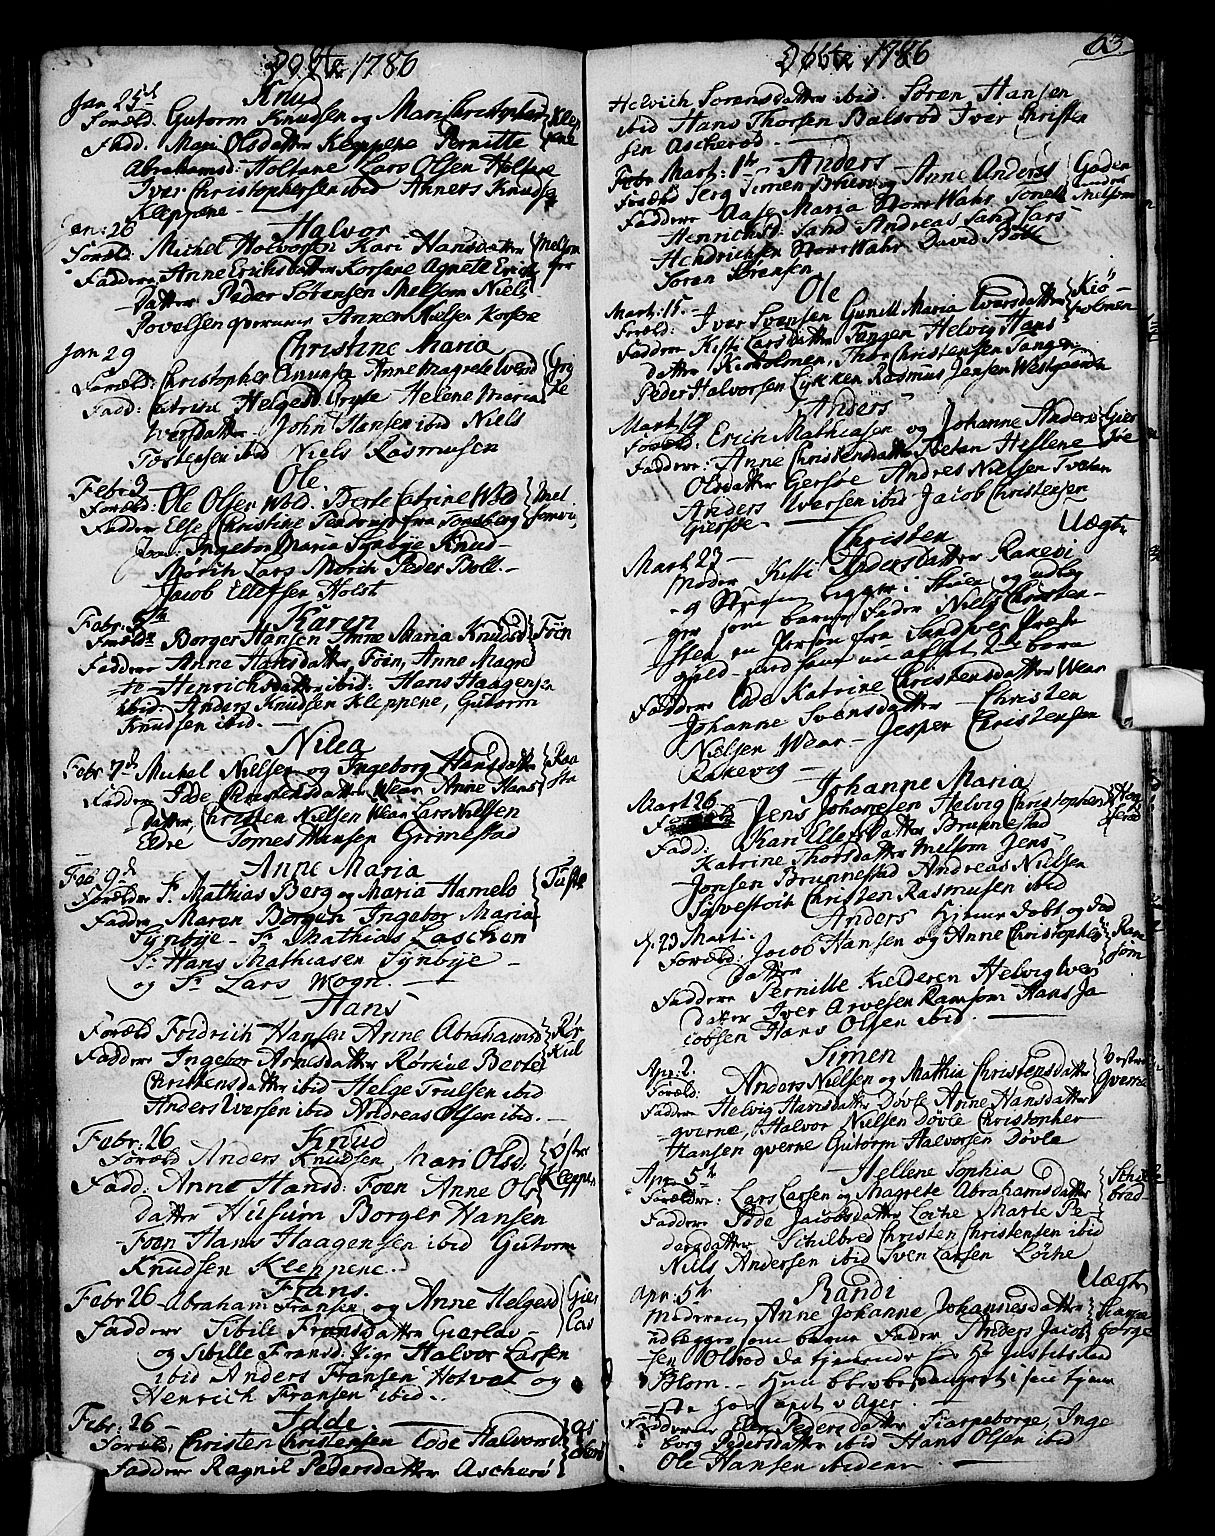 Døbte 1786
Jan 25de Knud
Foræld: Gutorm Knudsen og Mari Christophers Klep
Fadd: Mari Olsdatter Kleppene Pernille pene
Abrahamsd: Holtane Lars Olsen Holtane
Iver Christophersen ibid Anners Knudse
Kleppene
Jan: 26 Halvor
Foræld: Michel Halvorsen Kari Hansdatter Melsom
Faddere Anne Erichsdatter Korsene Agnete Erich
datter Peder Sørensen Melsom Niels
Povelsen qverne Anners Nielsen Korsene
Jan 29 Christine Maria
Foræld: Christopher Amunsen Anne Magrete Iversd Gry
Fadd: Catrine Helgesd Gryte Helene Maria te
Iversdatter John Hansen ibid Niels
Tortensen ibid Niels Rasmusen
Febr 3 Ole
Foræld: Ole Olsen Wold Berte Catrine Wold Mel
Faddere Else Christine Fra Tønsberg somvig
Jom: Ingebor Maria Synbye Knud
Mørich Lars Mørich Peder Boll
Jacob Ellefsen Holst
Febr: 5te Karen
Foræld: Borger Hansen Anne Maria Knudsd Foen
Faddere Anne Hansdatter Foen, Anne Magre
te Henrichsdatter ibid: Hans Haagensen
ibid: Anders Knudsen Kleppene, Gutorm
Knudsen ibid.
Nilea
Febr 7de Michel Nielsen og Ingeborg Hansdatter Raa
Faddere Idde Christensdatter Wear Anne Hans sta
datter, Christen Nielsen Wear Lars Nielsen
Eldre Tomes Hansen Grimestad
Feb 9de Anne Maria
Forældre Sr. Mathias Berg og Maria Hamelo
Faddere Maren Borgen Ingebor Maria
Synbye Sr Mathias Laschen
Sr. Hans Mathiasen Synbye
og Sr Lars Wogn.
Hans
Foræld Fridrich Hansen Anne Abrahamsd Rør
Faddere Ingebor Arnesdatter Rørkul Berte Kul
Christensdatter ibid Helge Trulsen ibid
Anders Iversen ibid Andreas Olsen ibid.
Febr: 26 Knud
Foræld Anders Knudsen Mari Olsd, Øster
Fadd: Anne Hansd: Foen Anne Ols Kleppen
datter Husum Borger Hansen
Foen Hans Haagensen ibid Gutorm
Knudsen Kleppene.
Frans.
Febr 26 Abraham Fransen og Anne Helgesd Gier
Faddere Sibile Fransdatter Gierløs løs
og Sibille Fransd: Pige Halvor Larsen
ibid Anders Fransen Holvat og
Henrich Fransen ibid.
Febr: 26 Idde.
Foræld; Christen Christensen Iode Halvorsd As
Faddere Ragnil Pedersdatter Ascherø

Døbte 1786 63
Helvich Sørensdatter ibid. Søren Hansen
ibid Hans Thorsen Balsrød Iver Christen
sen Ascherød.
Mart: 1te Anders
Foræld Jerg Simensen og Anne Andersd Goden
Faddere Aase Maria Storr Wahr Tonell
Henrichsd: Sand Andreas Sand Lars
Hendrichsen Storr Wahr David Boll
Søren Sørensen
Ole
Mart: 15. Iver Svensen Gunill Maria Iversdatter Kiø
Foræld: polmen
Faddere Kisti Larsdatter Tangen Helvig Hans
datter Kiøpolmen, Thor Christensen Tangen
Peder Halvorsen Lykken Rasmus Jensen Westgaarden
Mart: 19 Anders
Foræld: Erich Mathiasen og Johanne Andersd Gies
Faddere: Anne Christensdatter Tvetan Hellene øe
Olsdatter Gersøe Andres Nielsen Tvetan
Anders Iversen ibid Jacob Christensen
Giersøe Uægte
Christen
Mart 23 Moder Kisti Andersdatter Rakevi
og ligger i Huus og udleg
ger som barne Fader Niels Christen
sen en Person fra Sandsver Præste
gield med ham nu aflet 2det barn
Faddere Ide Katrine Christensdatter Wear
Johanne Svensdatter Christen
Nielsen Wear Jesper Christensen
Rakevig
Johanne Maria
Mart 26 Jens Johannesen Helvig Christophersd
Fadd: Kari Ellefsdatter Brunnestad
Katrine Thorsdatter Melsom Jens
Jonsen Brunnestad Andreas Nielsen
Sævestvik Christen Rasmusen ibid
Anders Hjemme døbt og død
d. 23 Marti: Jacob Hansen og Anne Christopher Ram
Foræld: datter som
Faddere Pernille Kielderen Helvig Iver
datter Iver Arvesen Ramsom Hans Ja
cobsen Hans Olsen ibid.
Simen
Apr: 2. Anders Nielsen og Mathia Christensdatter Vestre
Foræld: Qverne
Faddere Helvig Hansdatter Døvle Anne Hansdatter
qverne, Halvor Nielsen Døvle Christopher
Hansen qverne Gutorm Halvorsen Døvle
Apr: 5te Hellene Sophia
Forældre: Lars Larsen og Magrete Abrahamsdatter
Faddere Idde Jacobsdatter Løche Marte Pe
dersdatter Schilbred Christen Christensen ibid
Niels Andersen ibid Sven Larsen Løche
Apr: 5te Randi Uægte
Moderen Anne Johanne Johannesdatter Fiærpe
udlegges som barne Fader Anders Jacob borge
sen Olsrød da tjenende hos Hr Justitsraad
Blom. Hun i sin tjene
ste hos Capit v Ager
Fadderne Elen Pedersdatter Fiarpeborge, Inge
borg Pedersdatter ibid Hans Olsen ibid
Ole Hansen ibidem